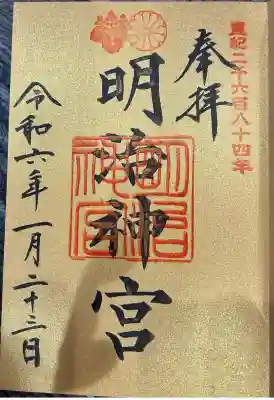 皇紀二千六百八十四年
奉拝
明治神宮
明治神宮
令和六年一月二十三日